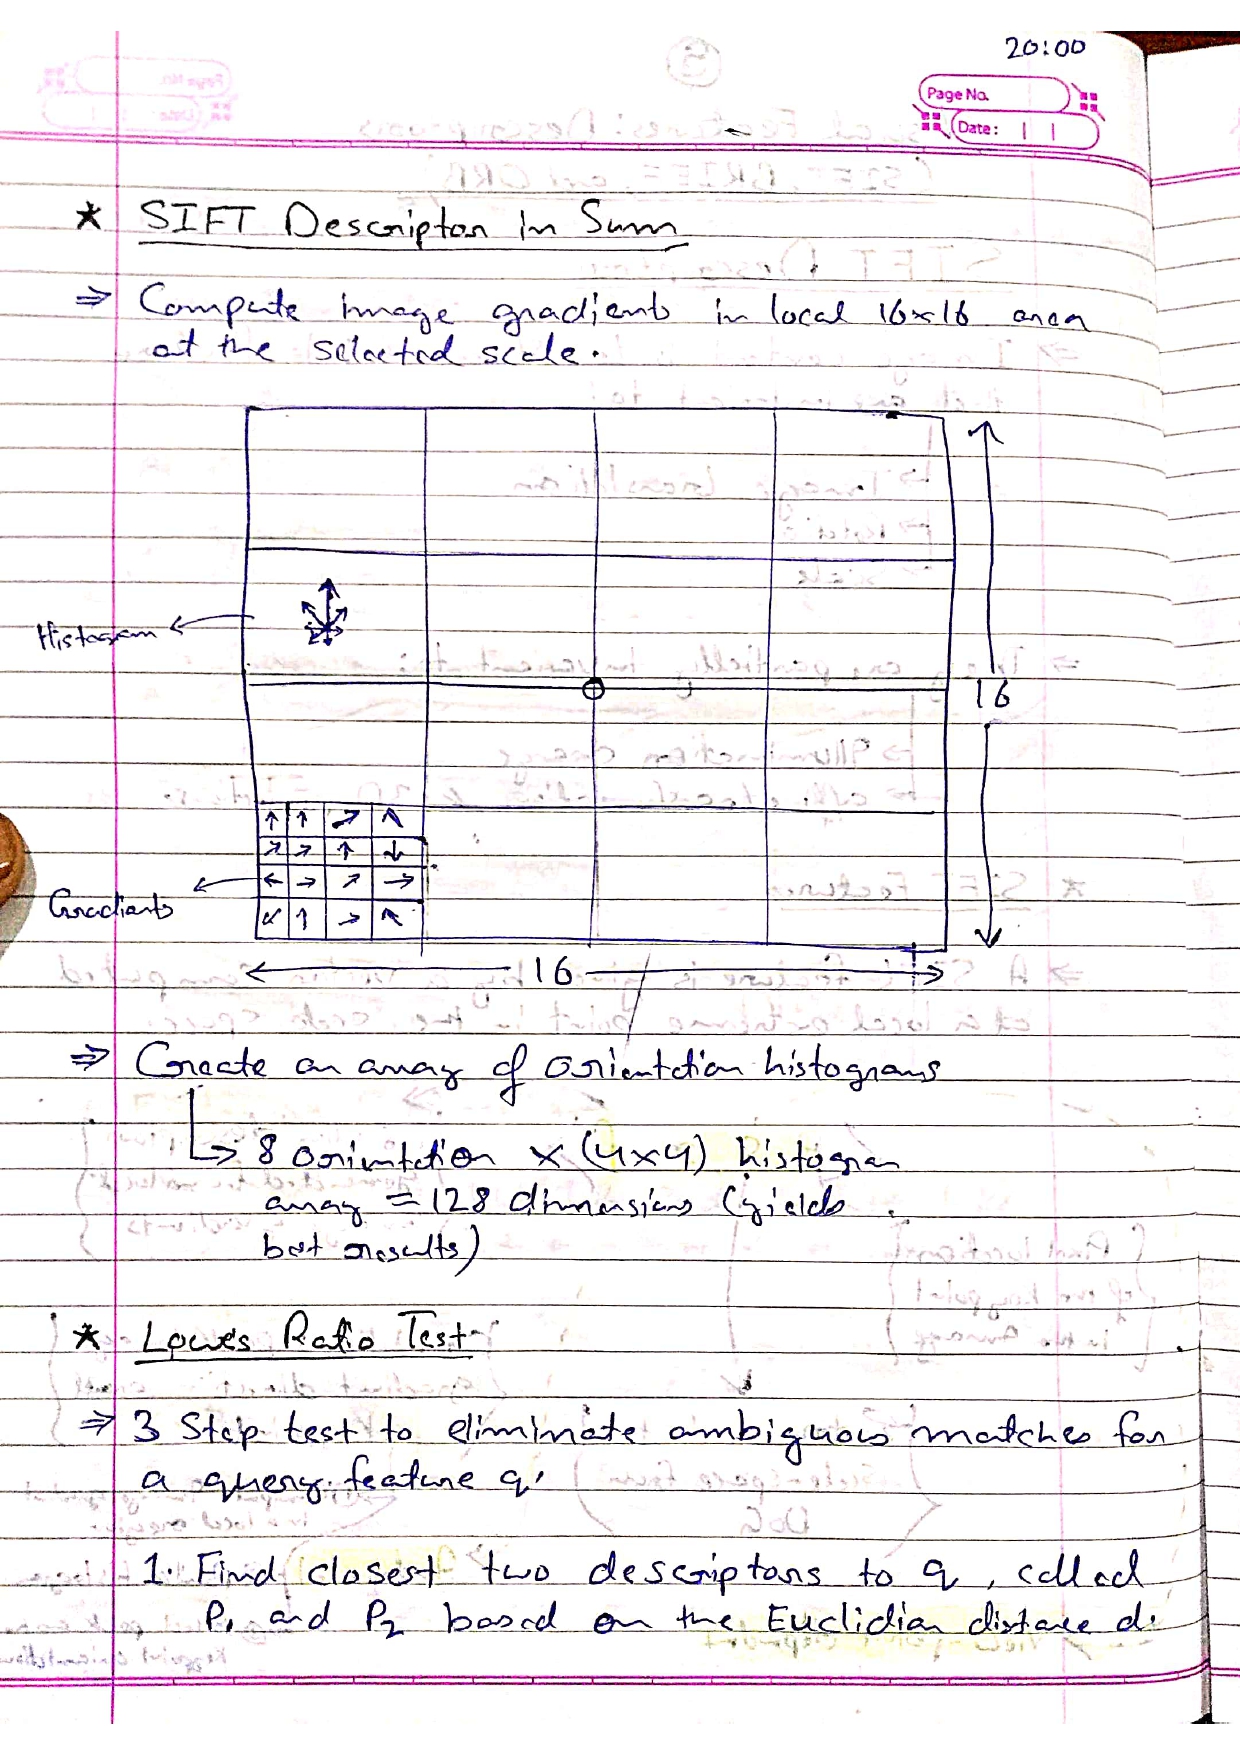 20:00
Page No.
Date:
* SIFT Descriptor in Sum
⇒ Compute image gradients in local 16x16 area
at the selected scale.
Histogram
16
Gradients
16
⇒ Create an array of orientation histograms
↳ 8 orientation × (4×4) histogram
array = 128 dimensions (yields
best results)
* Lowe's Ratio Test
⇒ 3 Step test to eliminate ambiguous matches for
a query feature q.
1. Find closest two descriptors to q, called
P₁ and P₂ based on the Euclidian distance d.